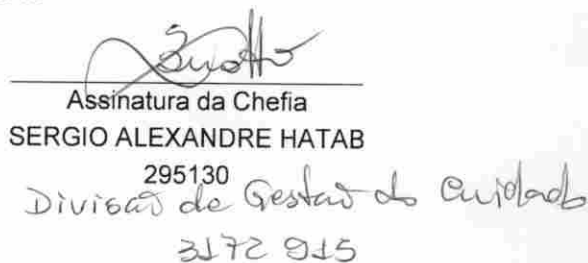 Assinatura da Chefia
SERGIO ALEXANDRE HATAB
295130
Divisão de Gestão do Cuidado
3172 915